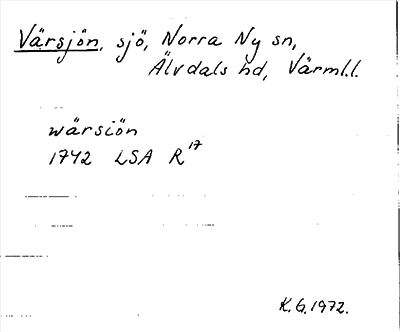 Värsjön, sjö, Norra Ny sn,
Älvdals hd, Värml.l.
wärsiön
1742 LSA R 17
K.G. 1972.